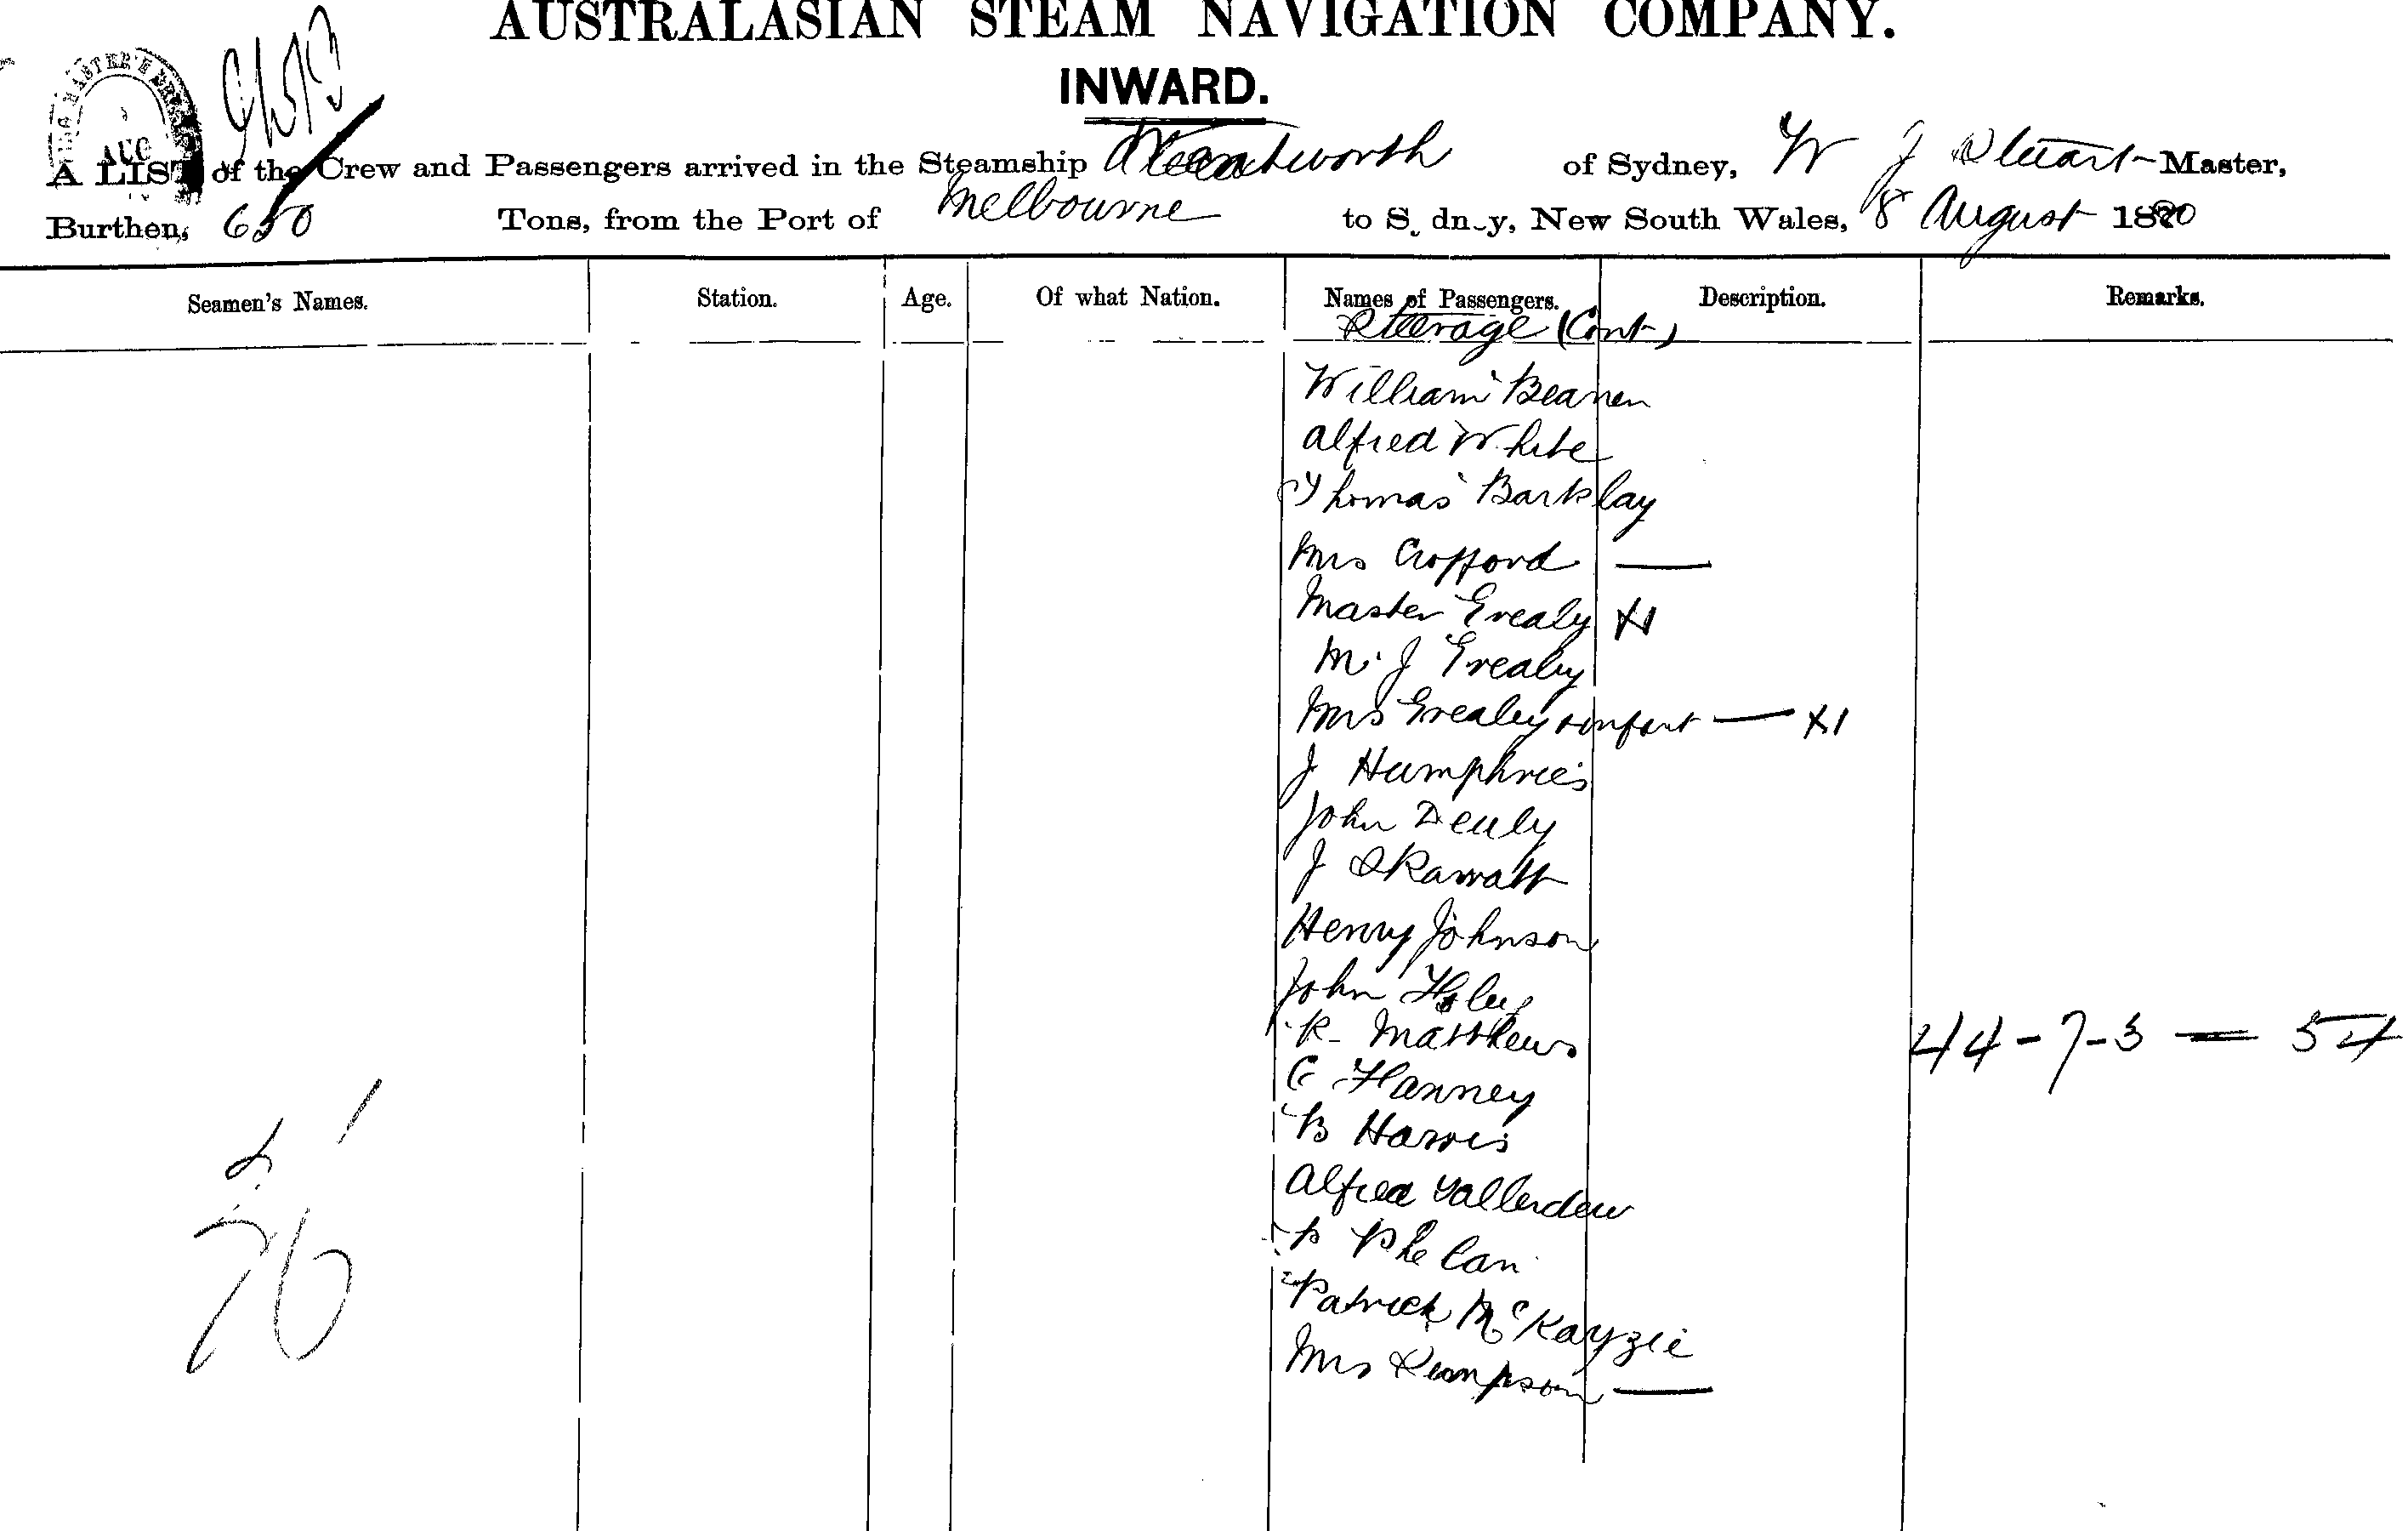 AUSTRALASIAN STEAM NAVIGATION COMPANY.
INWARD.
AUG
A LIST of the Crew and Passengers arrived in the Steamship Wentworth of Sydney, W J Stuart Master,
Burthen, 650 Tons, from the Port of Melbourne to S. dn-y, New South Wales, 8 August 1880
Seamen's Names. Station. Age. Of what Nation. Names of Passengers. Description. Remarks.
Steerage (Cont)
William Beanen
Alfred White
Thomas Barklay
Mrs Crofford —
Master Grealy X1
M. J Grealy
Mrs Grealy & infant — X1
J Humphries
John
J
Henry Johnson
John
R. Matthews
44-7-3 = 54
C Hanney
B Harris
Alfred
P Phelan
Patrick McKayzie
Mrs Simpson —
76